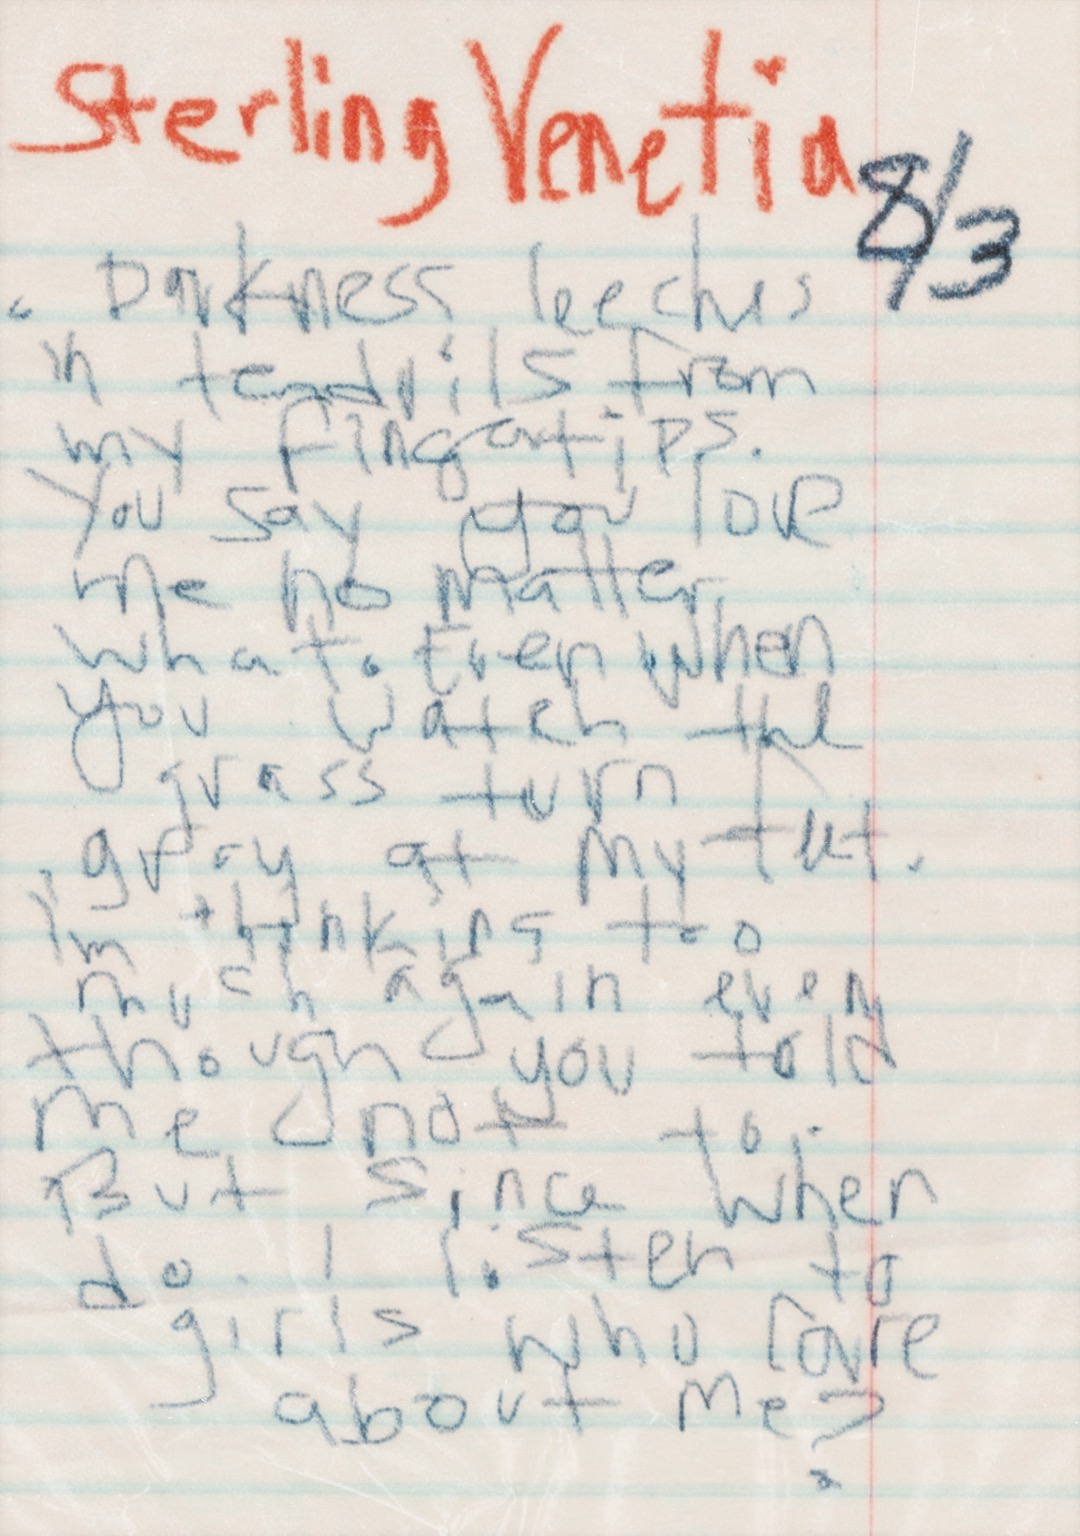 Sterling Venetia
8/3
Darkness leeches
in tendrils from
my fingertips.
You say you love
me no matter
what. Even when
you watch the
grass turn
gray at my feet.
I'm thinking too
much again even
though you told
me not to.
But since when
do I listen to
girls who care
about me?